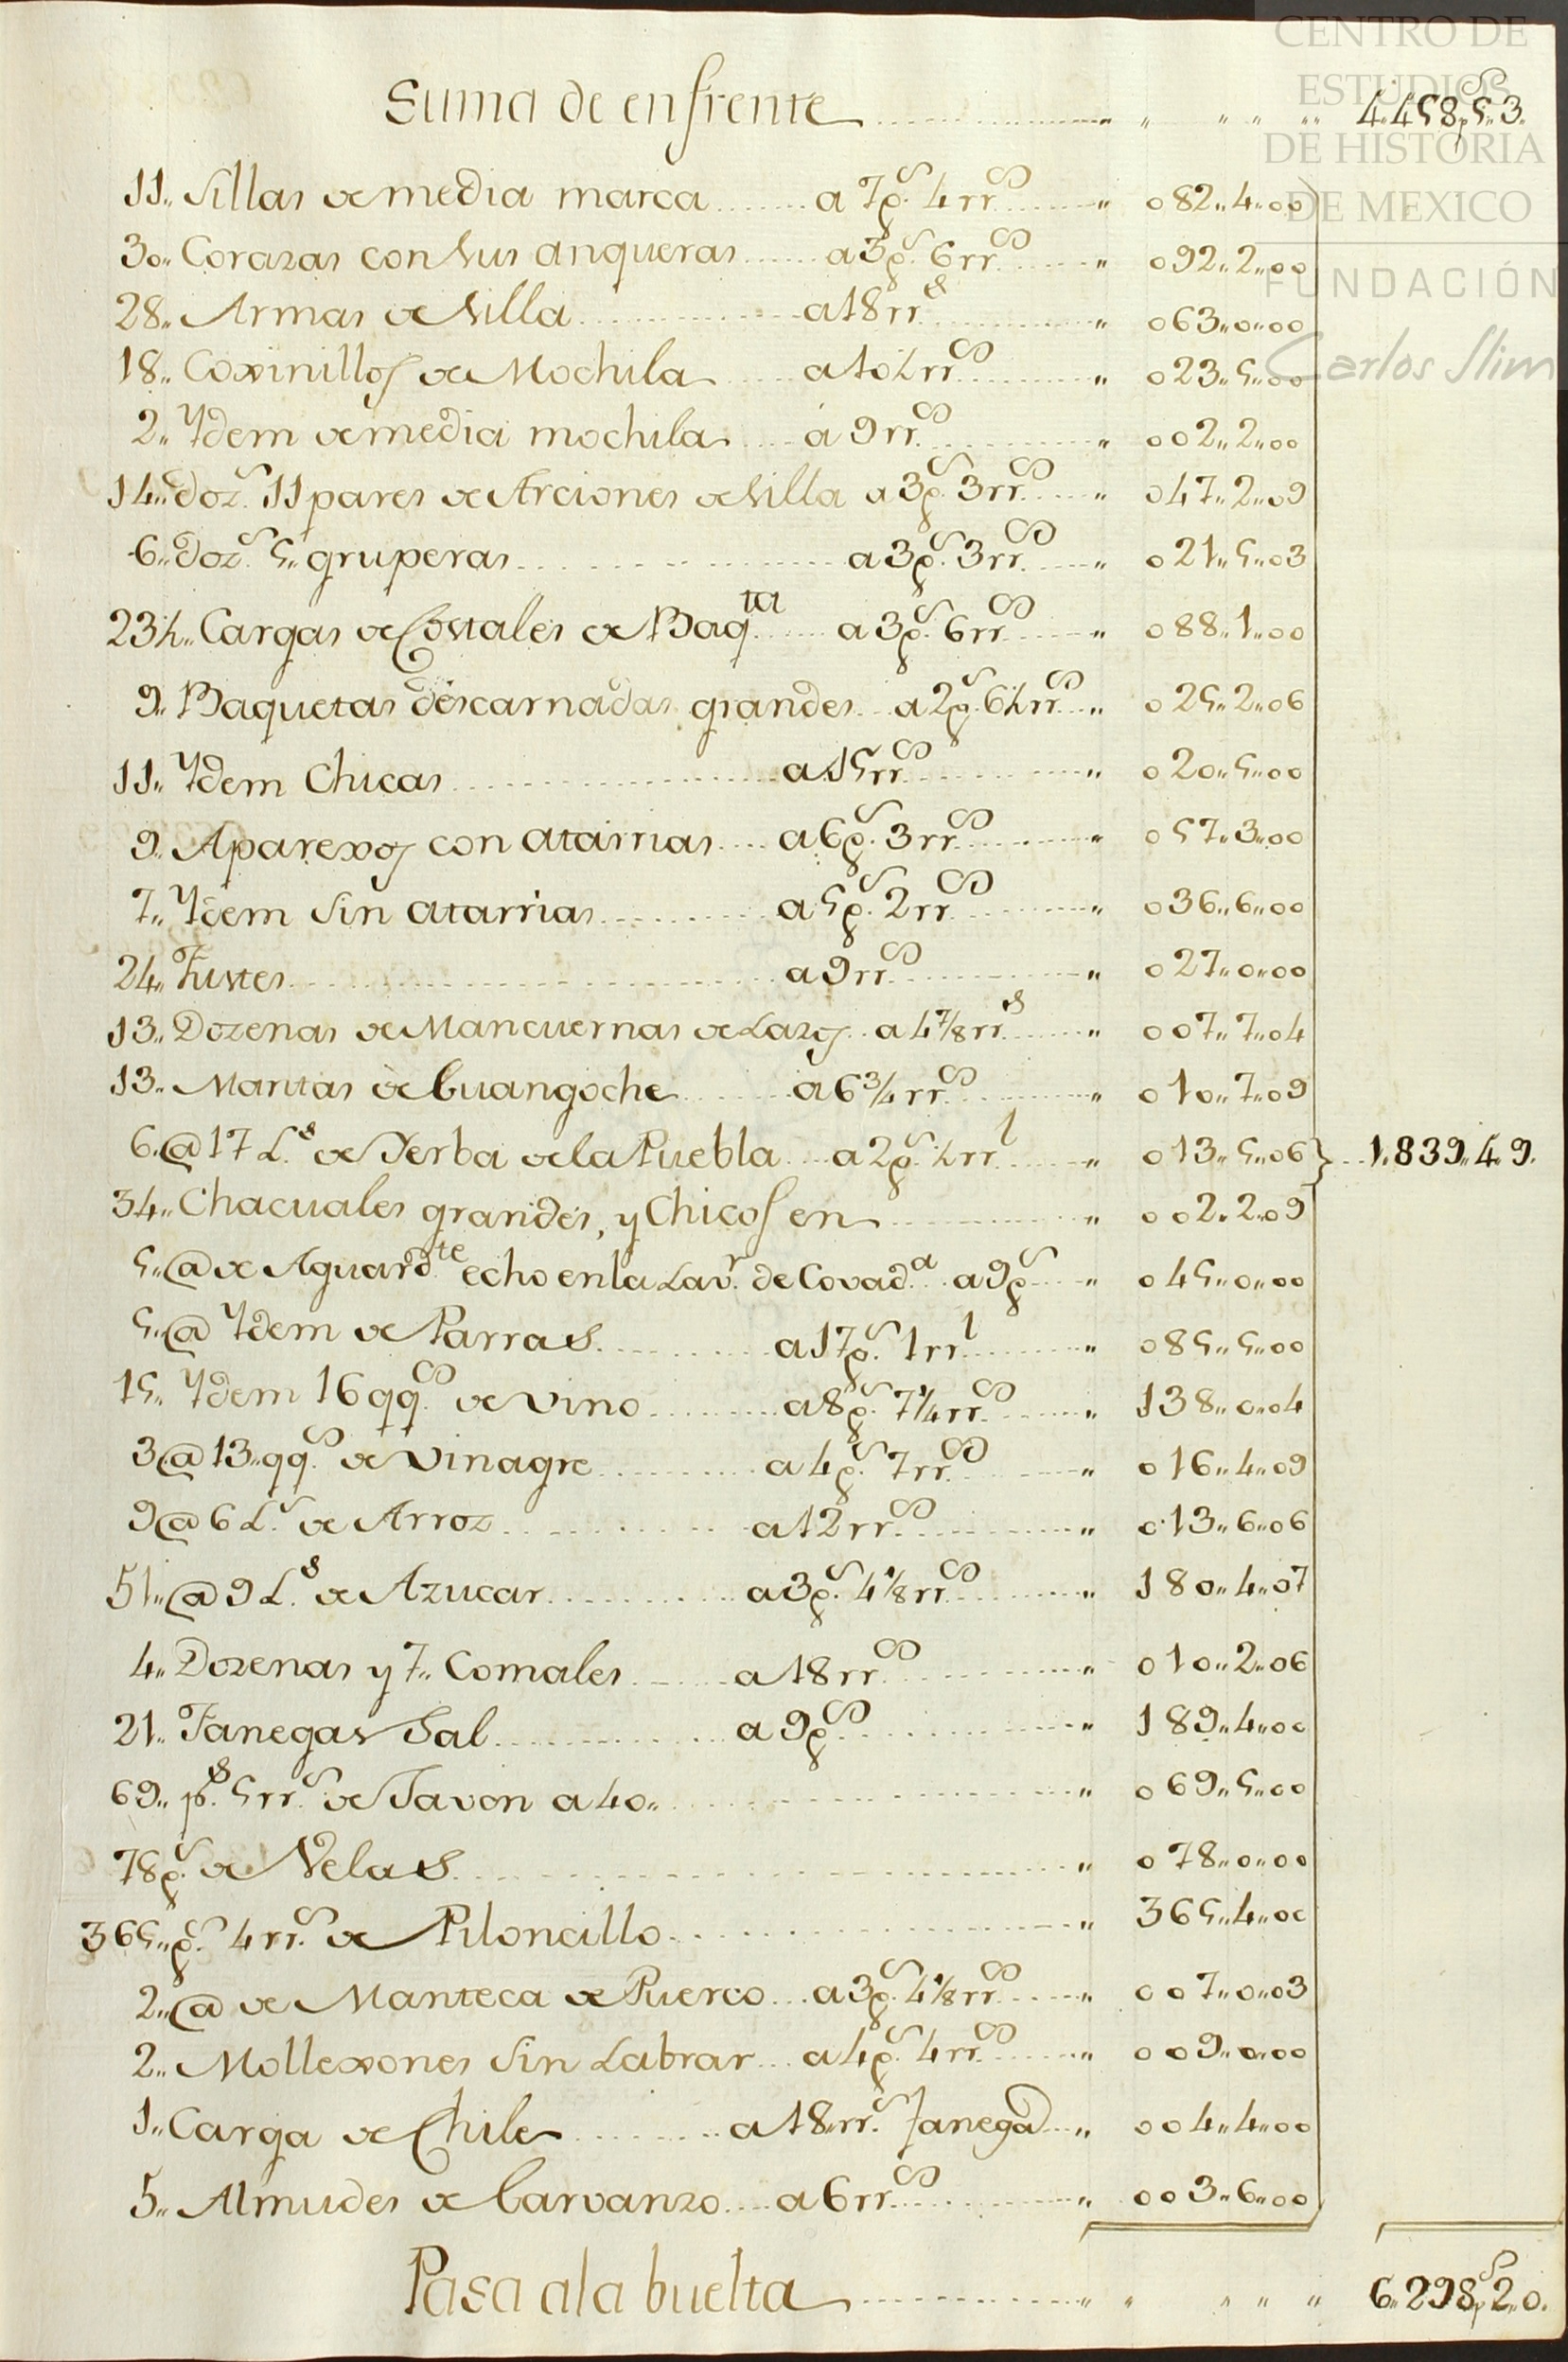 CENTRO DE
ESTUDIOS
DE HISTORIA
DE MEXICO
FUNDACIÓN
Carlos Slim
Suma de enfrente 4.458p.s 5.. 3.
11.. Sillas de media marca a 7p.s 4rr.s 082..4..00
30.. Corazas con sus anqueras a 3p.s 6rr.s 092..2..00
28.. Armas de silla a 18rr.s 063..0..00
18.. Coxinillos de Mochila a 10½rr.s 023..5..00
2.. Ydem de media mochila á 9rr.s 002..2..00
14.. doz.s 11 pares de Arciones de silla a 3p.s 3rr.s 047..2..09
6.. doz.s 5.. gruperas a 3p.s 3rr.s 021..5..03
23½.. Cargas de Costales de Baq.ta a 3p.s 6rr.s 088..1..00
9.. Baquetas descarnadas grandes a 2p.s 6½rr.s 025..2..06
11.. Ydem Chicas a 15rr.s 020..5..00
9.. Aparexos con atarrias a 6p.s 3rr.s 057..3..00
7.. Ydem sin atarrias a 5p.s 2rr.s 036..6..00
24.. Fustes a 9rr.s 027..0..00
13.. Dozenas de Mancuernas de Lazos a 4 7/8 rr.s 007..7..04
13.. Mantas de Guangoche a 6 3/4 rr.s 010..7..09
6..@ 17 L.s de Yerba de la Puebla a 2p.s ½rr.l 013..5..06 } 1.839..4..9.
34.. Chacuales grandes, y Chicos en 002..2..09
5..@ de Aguard.te echo en la Lav.r de Covad.a a 9p.s 045..0..00
5..@ Ydem de Parras a 17p.s 1rr.l 085..5..00
15.. Ydem 16 qq.s de vino a 8p.s 7 1/4 rr.s 138..0..04
3@ 13.. qq.s de Vinagre a 4p.s 7rr.s 016..4..09
9@ 6 L.s de Arroz a 12rr.s 013..6..06
51..@ 9 L.s de Azucar a 3p.s 4 1/8 rr.s 180..4..07
4.. Dozenas y 7.. Comales a 18rr.s 010..2..06
21.. Fanegas Sal a 9p.s 189..4..00
69.. p.s 5rr.s de Javon a 40.. 069..5..00
78p.s de Velas 078..0..00
365.. p.s 4rr.s de Piloncillo 365..4..00
2..@ de Manteca de Puerco a 3p.s 4 1/8 rr.s 007..0..03
2.. Mollexones sin Labrar a 4p.s 4rr.s 009..0..00
1.. Carga de Chile a 18rr.s fanega 004..4..00
5.. Almudes de Garvanzo a 6rr.s 003..6..00
Pasa a la buelta 6..298p.s 2..0.